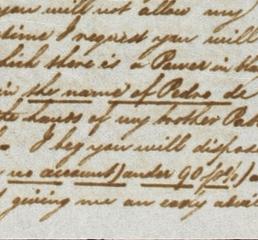 you will not allow my
time I request you will
which there is a Power in bla
in the name of Pedro de
te hours of my brother Pat
I beg you will dispos
no account) under 90
giving me an early